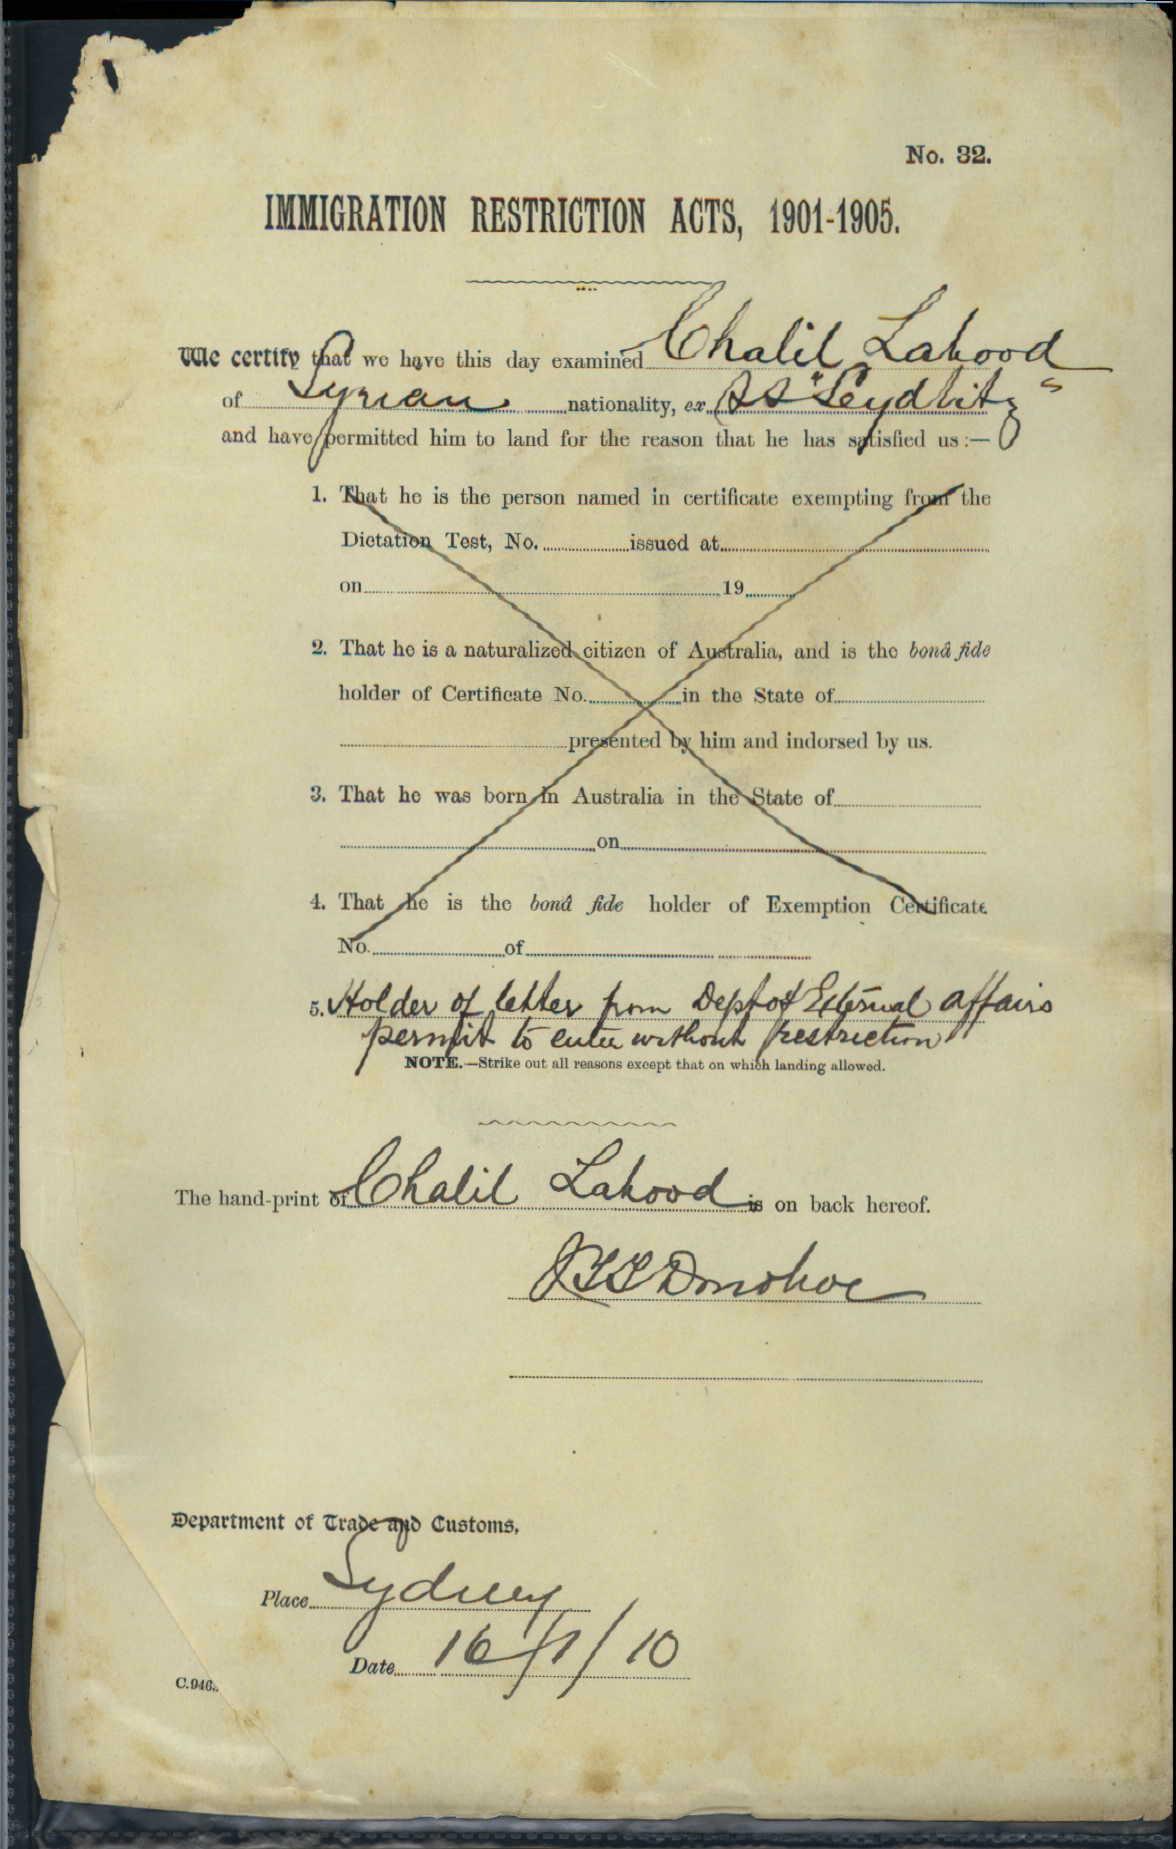 No. 32.
IMMIGRATION RESTRICTION ACTS, 1901-1905.
We certify that we have this day examined Chalil Lahood
of Syrian nationality, ex SS "Seydlitz"
and have permitted him to land for the reason that he has satisfied us :—
1. That he is the person named in certificate exempting from the
Dictation Test, No. issued at
on 19
2. That he is a naturalized citizen of Australia, and is the bonâ fide
holder of Certificate No. in the State of
presented by him and indorsed by us.
3. That he was born in Australia in the State of
on
4. That he is the bonâ fide holder of Exemption Certificate
No. of
5. Holder of letter from Dept of External affairs
permit to enter without restriction
NOTE.—Strike out all reasons except that on which landing allowed.
The hand-print of Chalil Lahood is on back hereof.
Donohoe
Department of Trade and Customs,
Place Sydney
Date 16/1/10
C.946.